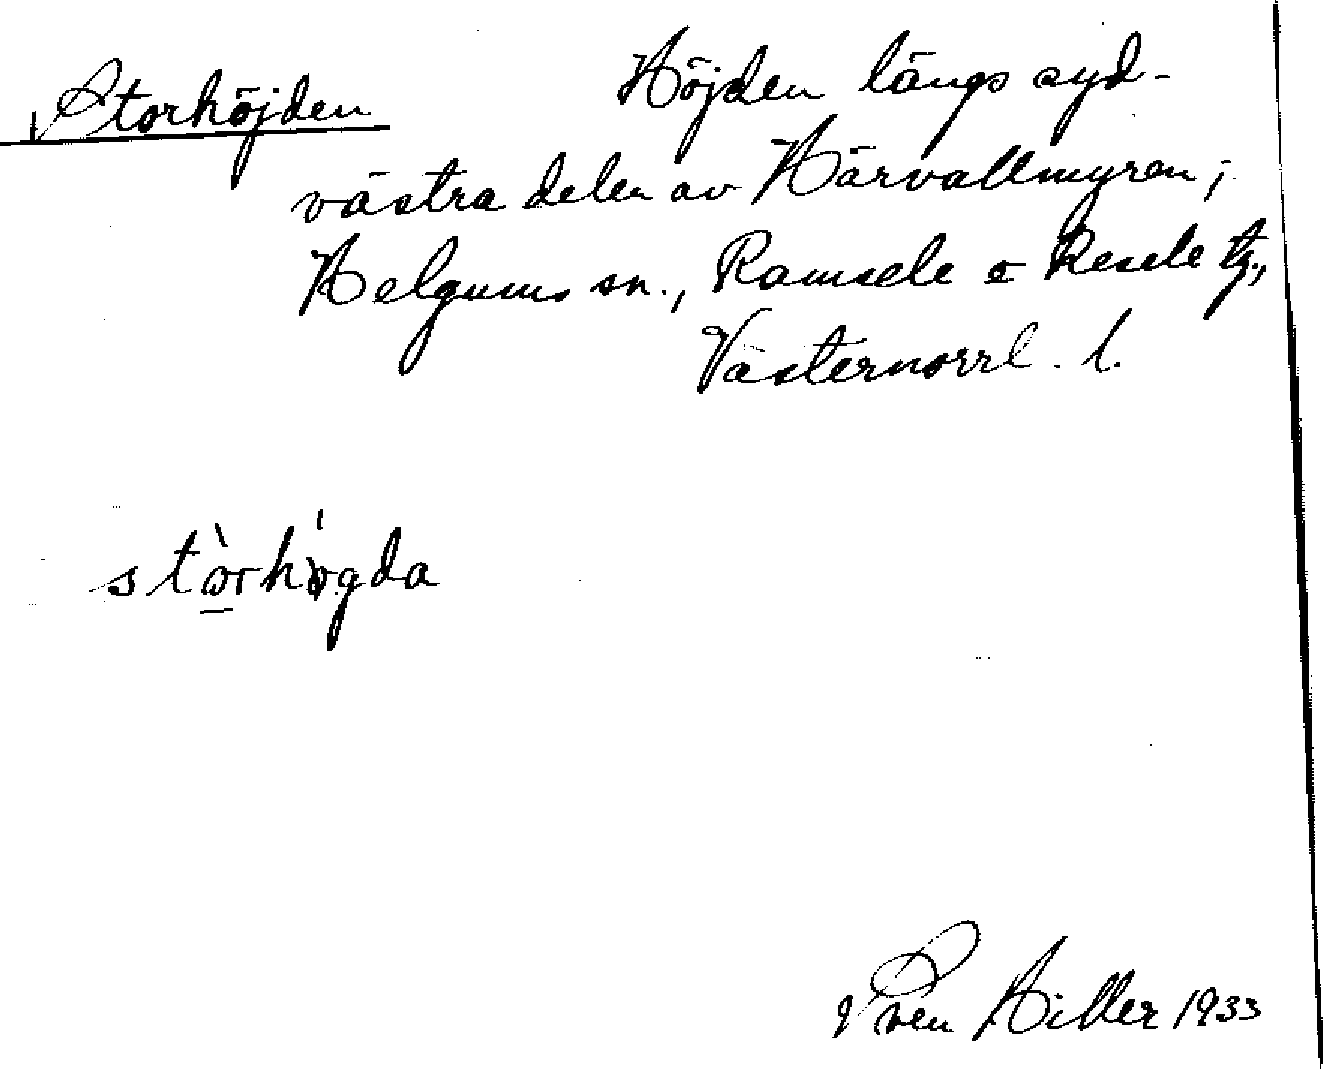 Storhöjden
Höjden längs syd-
västra delen av Härvallmyren;
Helgums sn., Ramsele o Resele tg.,
Västernorrl. l.
stòrhǿgda
Sven Hiller 1933